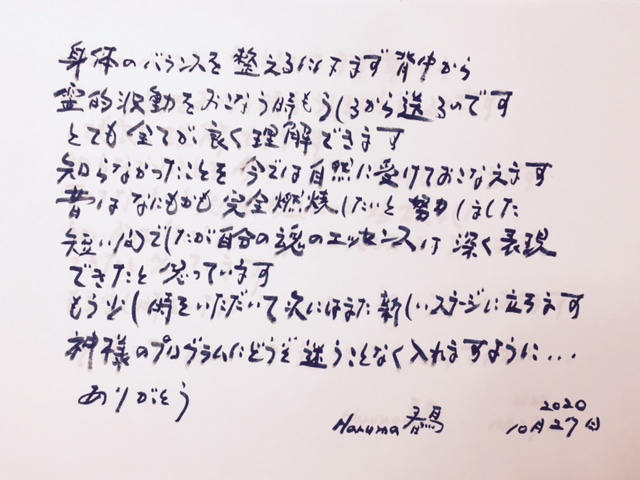 身体のバランスを整えるにはまず背中から
霊的波動をおこなう時もうしろから送るのです
とても全てが良く理解できます
知らなかったことを今では自然に受けておこなえます
昔はなにもかも完全燃焼したいと努力しました
短い間でしたが自分の魂のエッセンスは深く表現
できたと思っています
もう少し時をいただいて次にはまた新しいステージに立ちます
神様のプログラムにどうぞ迷うことなく入れますように...
ありがとう
Haruma 春馬
2020
10月27日